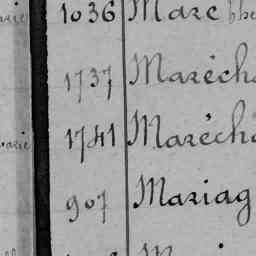 1036 Marc
1737 Maréch
1741 Maréch
907 Mariag